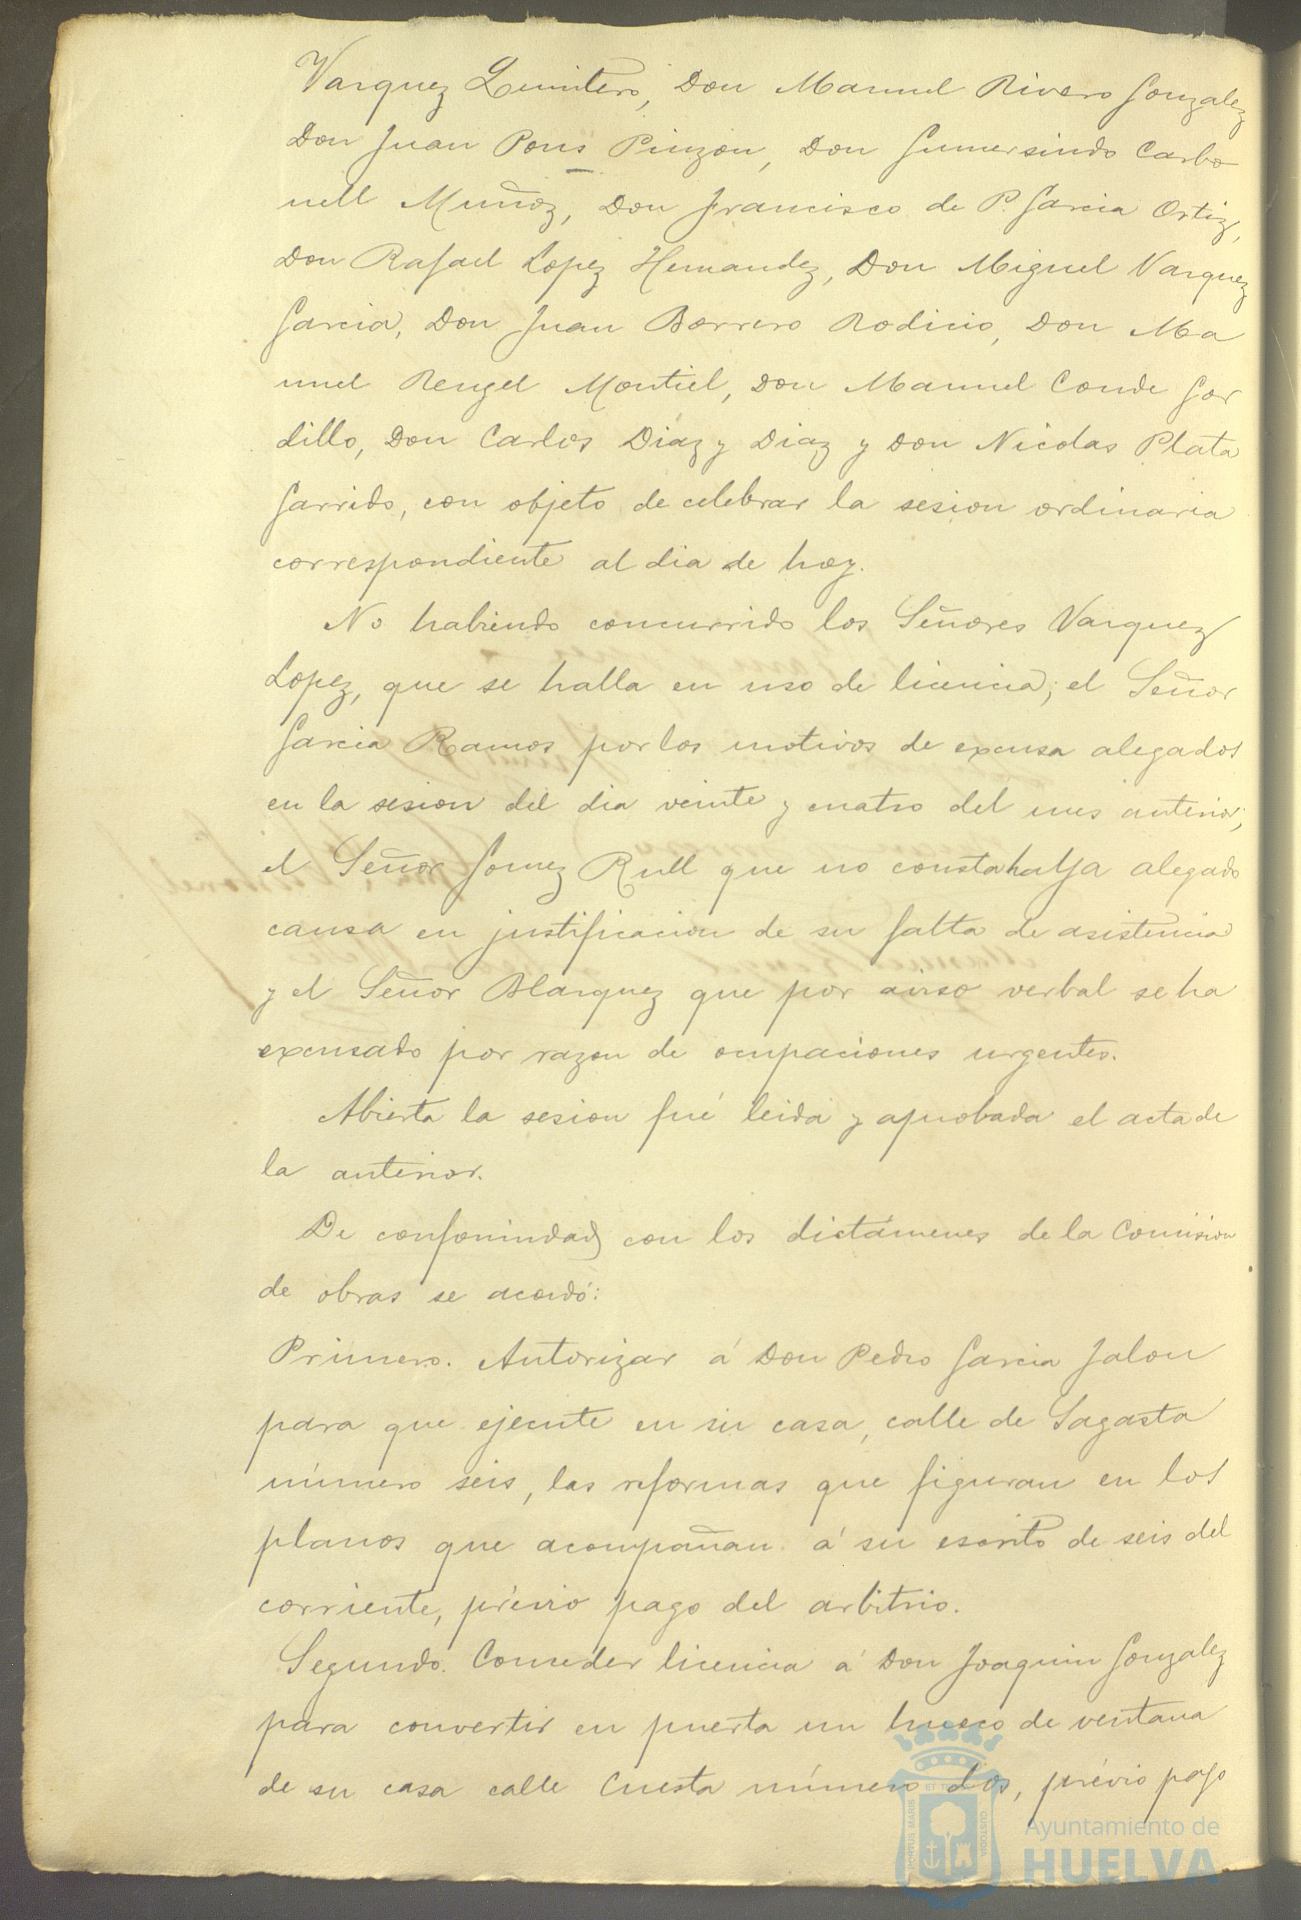 Vazquez Quintero, Don Manuel Rivero Gonzalez
Don Juan Pons Pinzon, Don Gumersindo Carbo
nell Muñoz, Don Francisco de P. Garcia Ortiz,
Don Rafael Lopez Hernandez, Don Miguel Vazquez
Garcia, Don Juan Borrero Rodicio, Don Ma
nuel Rengel Montiel, Don Manuel Conde Gor
dillo, Don Carlos Diaz y Diaz y Don Nicolas Plata
Garrido, con objeto de celebrar la sesion ordinaria
correspondiente al dia de hoy.
No habiendo concurrido los Señores Vazquez
Lopez, que se halla en uso de licencia; el Señor
Garcia Ramos por los motivos de excusa alegados
en la sesion del dia veinte y cuatro del mes anterior;
el Señor Gomez Rull que no consta halla alegado
causa en justificacion de su falta de asistencia
y el Señor Blazquez que por aviso verbal se ha
excusado por razon de ocupaciones urgentes.
Abierta la sesion fué leida y aprobada el acta de
la anterior.
De conformindad con los dictámenes de la Comision
de obras se acordó:
Primero. Autorizar á Don Pedro Garcia Jalon
para que ejecute en su casa, calle de Sagasta
número seis, las reformas que figuran en los
planos que acompañan á su escrito de seis del
corriente, prévio pago del arbitrio.
Segundo. Conceder licencia á Don Joaquin Gonzalez
para convertir en puerta un hueco de ventana
de su casa calle Cuesta número dos, prévio pago
Ayuntamiento de
HUELVA
PORTUS MARIS ET TERRAE CUSTODIA